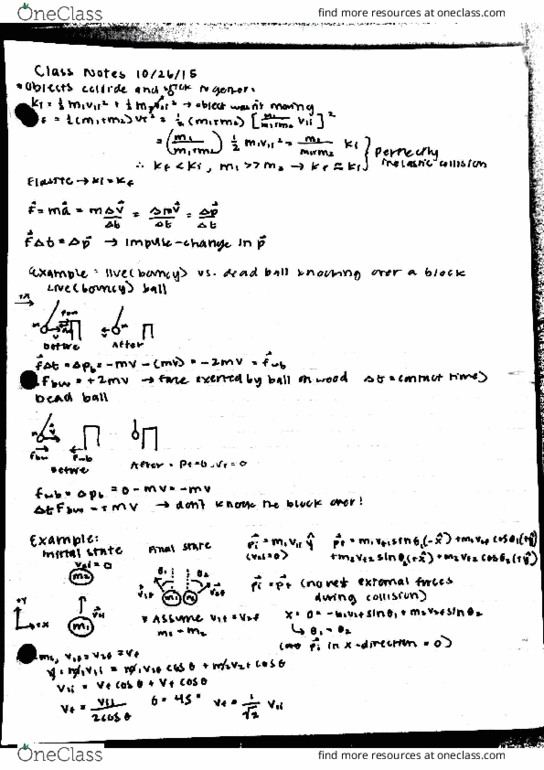 OneClass
find more resources at oneclass.com
Class Notes 10/26/15
*Objects collide and stick together:
Ki = ½ m₁v₁ᵢ² + ½ m₂v₂ᵢ² → object wasn't moving
= ½(m₁+m₂) vf² = ½ (m₁+m₂) [m₁/(m₁+m₂) v₁ᵢ]²
= (m₁/(m₁+m₂)) ½ m₁v₁ᵢ² = Ki } perfectly
∴ Kf < Ki, m₁ >> m₂ → Kf ≈ Ki } inelastic collision
Elastic → Ki = Kf
F⃗ = ma⃗ = mΔv⃗/Δt = Δmv⃗/Δt = Δp⃗/Δt
F⃗Δt = Δp⃗ → impulse-change in p⃗
Example: live(bouncy) vs. dead ball knocking over a block
Live(bouncy) ball
+x
m
v
Before
After
F⃗Δt = Δp_b = -mv - (mv) = -2mv = F⃗wb
Fbw = +2mv → force exerted by ball on wood Δt = contact time)
Dead ball
Fbw
Fwb
Before
After - Pf=0, vf=0
Fwb = Δp_b = 0 - mv = -mv
Δt Fbw = + mv → don't knock the block over!
Example:
Initial state
Final state
v₂ᵢ = 0
m₂
m₁
v₁ᵢ
+y
+x
θ₁
θ₂
v₁f
v₂f
* Assume v₁f = v₂f
m₁ = m₂
p⃗i = m₁v₁ᵢ ŷ
(v₂ᵢ=0)
p⃗f = m₁v₁f sinθ₁(-x̂) + m₁v₁f cosθ₁(+ŷ)
+ m₂v₂f sinθ₂(+x̂) + m₂v₂f cosθ₂(+ŷ)
p⃗i = p⃗f (no net external forces
during collision)
x = 0 = -m₁v₁f sinθ₁ + m₂v₂f sinθ₂
↳ θ₁ = θ₂
(no p⃗i in x-direction = 0)
m₂, v₁f = v₂f = vf
y = m₁v₁ᵢ = m₁v₁f cosθ + m₂v₂f cosθ
v₁ᵢ = vf cosθ + vf cosθ
vf = v₁ᵢ/2cosθ θ = 45° vf = 1/√2 v₁ᵢ
OneClass
find more resources at oneclass.com